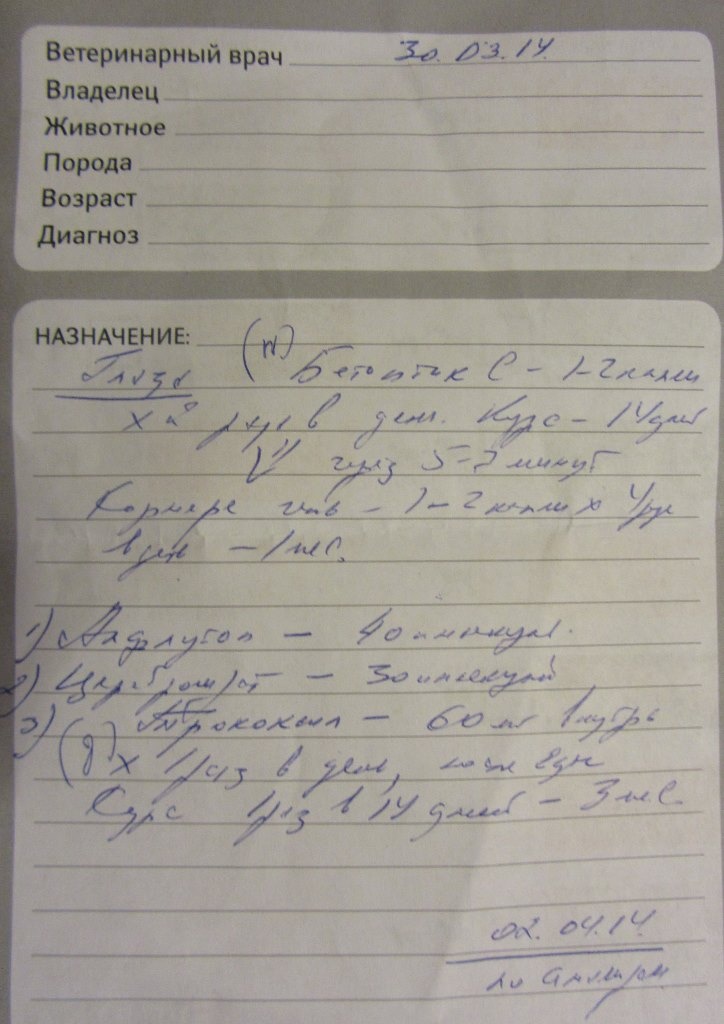 Ветеринарный врач 30.03.14
Владелец
Животное
Порода
Возраст
Диагноз
НАЗНАЧЕНИЕ: (N)
Глаза Бетоптик С - 1-2 капли
х 2 раза в день. Курс - 14 дней
через 5-7 минут
Корнере гель - 1-2 капли х 4 раза
в день - 1 мес.
1) Алфлутоп - 40 инъекций.
2) Церебролизат - 30 инъекций
3) Трококсил - 60 мг внутрь
х 1 раз в день, после еды
Курс 1 раз в 14 дней - 3 мес
02.04.14
по